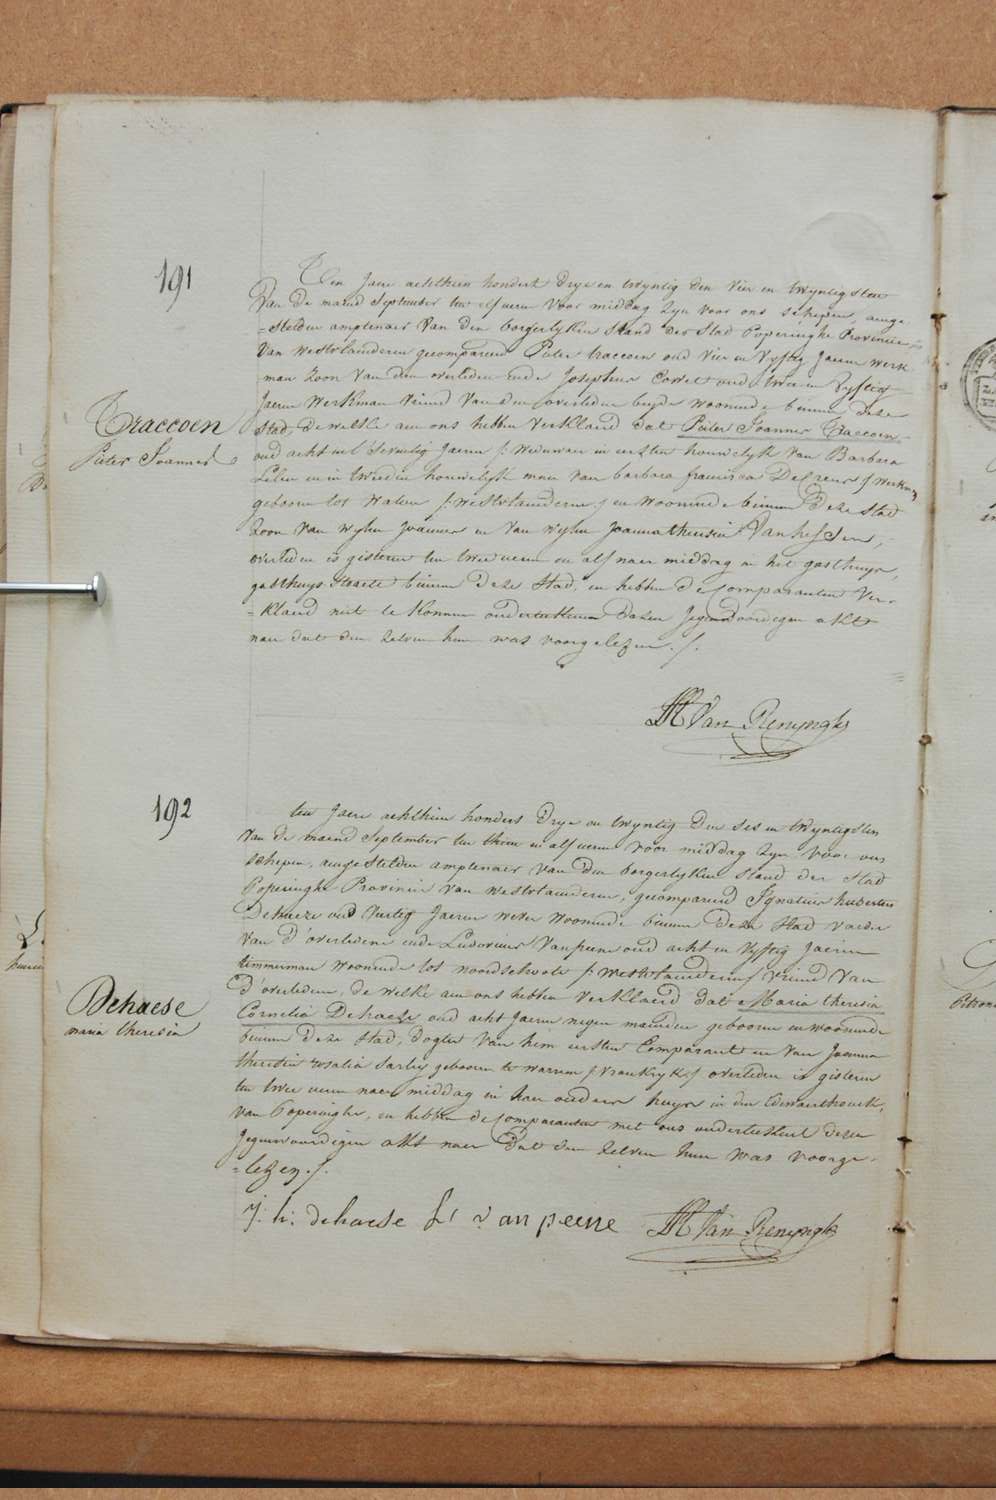 191
Traccoen
Pieter Joannes
Ten jaere achthien hondert drye en twyntig den vier en twyntigsten
van de maend September ten elf uren voor middag zyn voor ons schepen, aenge-
=stelden amptenaer van den borgerlyken Stand der Stad Poperinghe Provincie
van westvlaenderen gecompareerd Pieter traccoen oud vier en vyftig Jaeren werk-
man zoon van den overleden ende Josephus Corvet oud twee en vyftig
Jaeren werkman vriend van den overleden beyde woonende binnen deze
stad, dewelke aen ons hebben verklaerd dat Pieter Joannes Traccoen
oud acht en seventig Jaeren /: weduwaer in eersten houwelyk van Barbara
in tweeden houwelyk man van barbara francisca /: werkman
geboren tot watou /: westvlaenderen :/ en woonende binnen deze stad
zoon van wylen Joannes en van wylen Joanna theresia Van
overleden is gisteren ten twee uren en alf naer middag in het gasthuys,
gasthuys straete binnen deze stad, en hebben de Comparanten ver-
=klaerd niet te konnen onderteekenen dezen jegenwoordigen akt
naer dat den zelven hun was voorgelezen ./.
Van Renynghe
192
Dehaese
maria theresia
ten jaere achthien hondert drye en twyntig den ses en twyntigsten
van de maend September ten thien en alf uren voor middag zyn voor ons
schepen, aengestelden amptenaer van den borgerlyken stand der stad
Poperinghe Provincie van westvlaenderen, gecompareerd Ignatius hubertus
Dehaeze oud veertig Jaeren wever woonende binnen deze stad vader
van d'overledene ende Ludovicus Vanpeene oud acht en vyftig Jaeren
timmerman woonende tot noordschoote /: westvlaenderen :/ vriend van
d'overledene, de welke aen ons hebben verklaerd dat Maria theresia
Cornelia Dehaese oud acht Jaeren negen maenden geboren en woonende
binnen deze stad, dogter van hem eersten Comparant en van Joanna
theresia rosalia geboren te warem /: vrankryk :/ overleden is gisteren
ten twee uren naer middag in haer ouders huys in den
van Poperinghe, en hebben de Comparanten met ons onderteekent dezen
Jegenwoordigen akt naer dat den zelven hun was voorge-
=lezen ./.
J: h: dehaese L: vanpeene Van Renynghe